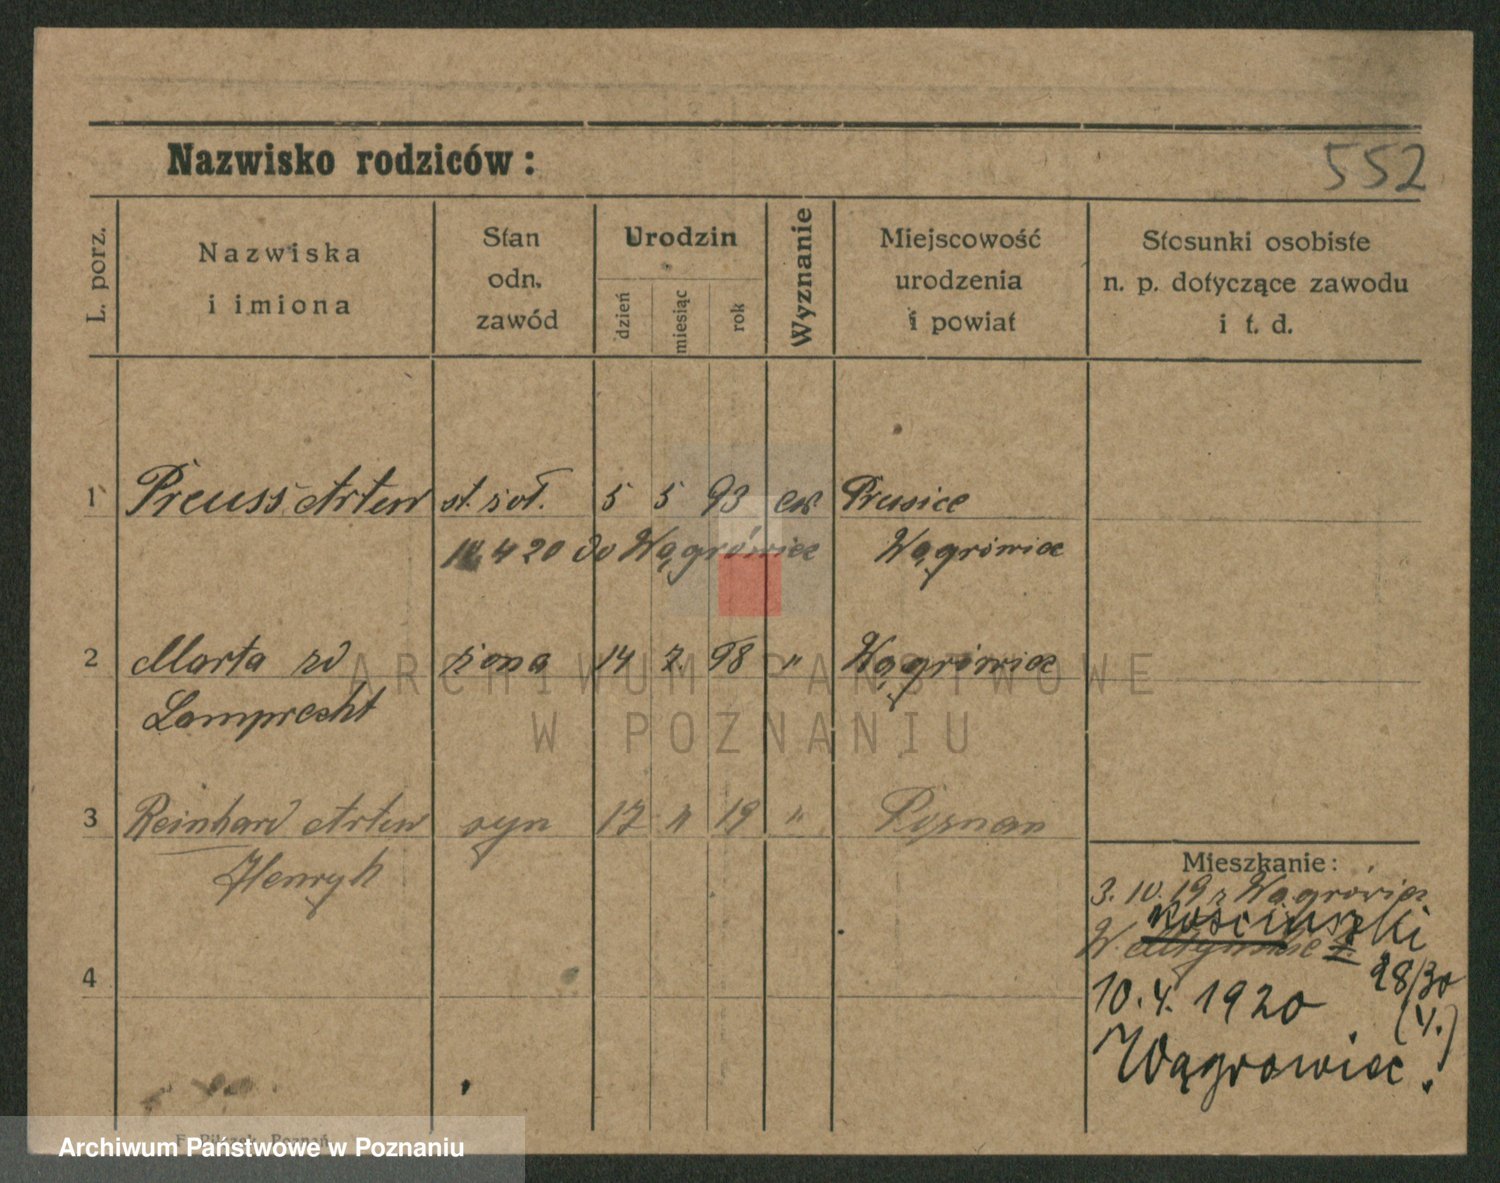 Nazwisko rodziców:
552
L. porz.
Nazwiska
i imiona
Stan
odn.
zawód
Urodzin
dzień
miesiąc
rok
Wyznanie
Miejscowość
urodzenia
i powiat
Stosunki osobiste
n. p. dotyczące zawodu
i t. d.
1 Preuss Artur st. żoł. 5 5 93 ew Prusice
4 20 do Wągrówiec Wągrówiec
2 Marta zd żona 14 2. 98 " Wągrówiec
Lamprecht
3 Reinhard Artur syn 17 " 19 " Poznan
Henryk
4
Mieszkanie:
3. 10. 19 z Wągrowiec
Kościuszki
W.
28/30
10. 4. 1920
(4.)
Wągrowiec.
ARCHIWUM PAŃSTWOWE
W POZNANIU
Poznań
Archiwum Państwowe w Poznaniu